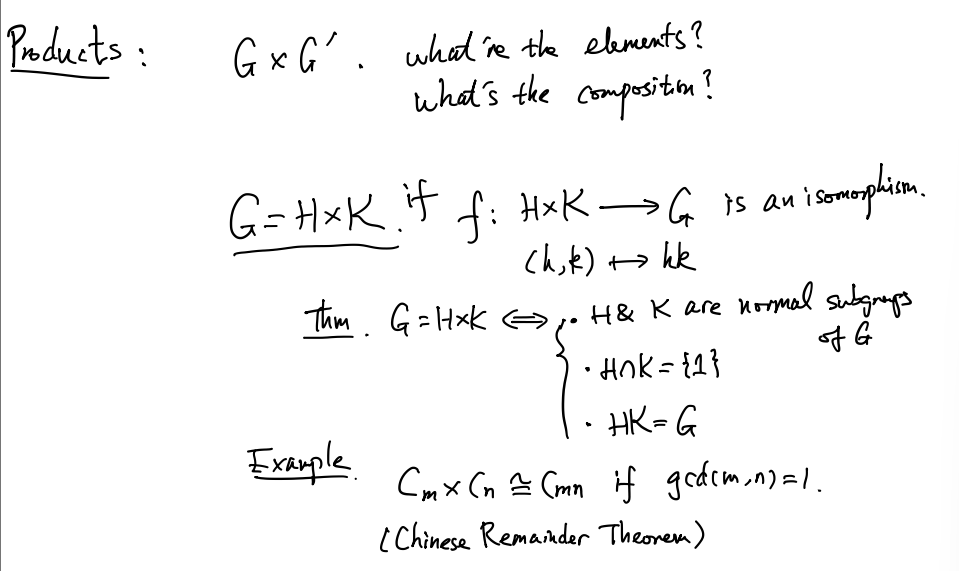 Products: G × G′. what're the elements?
what's the composition?
G = H×K. if f: H×K ⟶ G is an isomorphism.
(h,k) ↦ hk
Thm. G = H×K ⟺ { · H & K are normal subgroups
of G
· H∩K = {1}
· HK = G
Example. Cm × Cn ≅ Cmn if gcd(m,n)=1.
(Chinese Remainder Theorem)